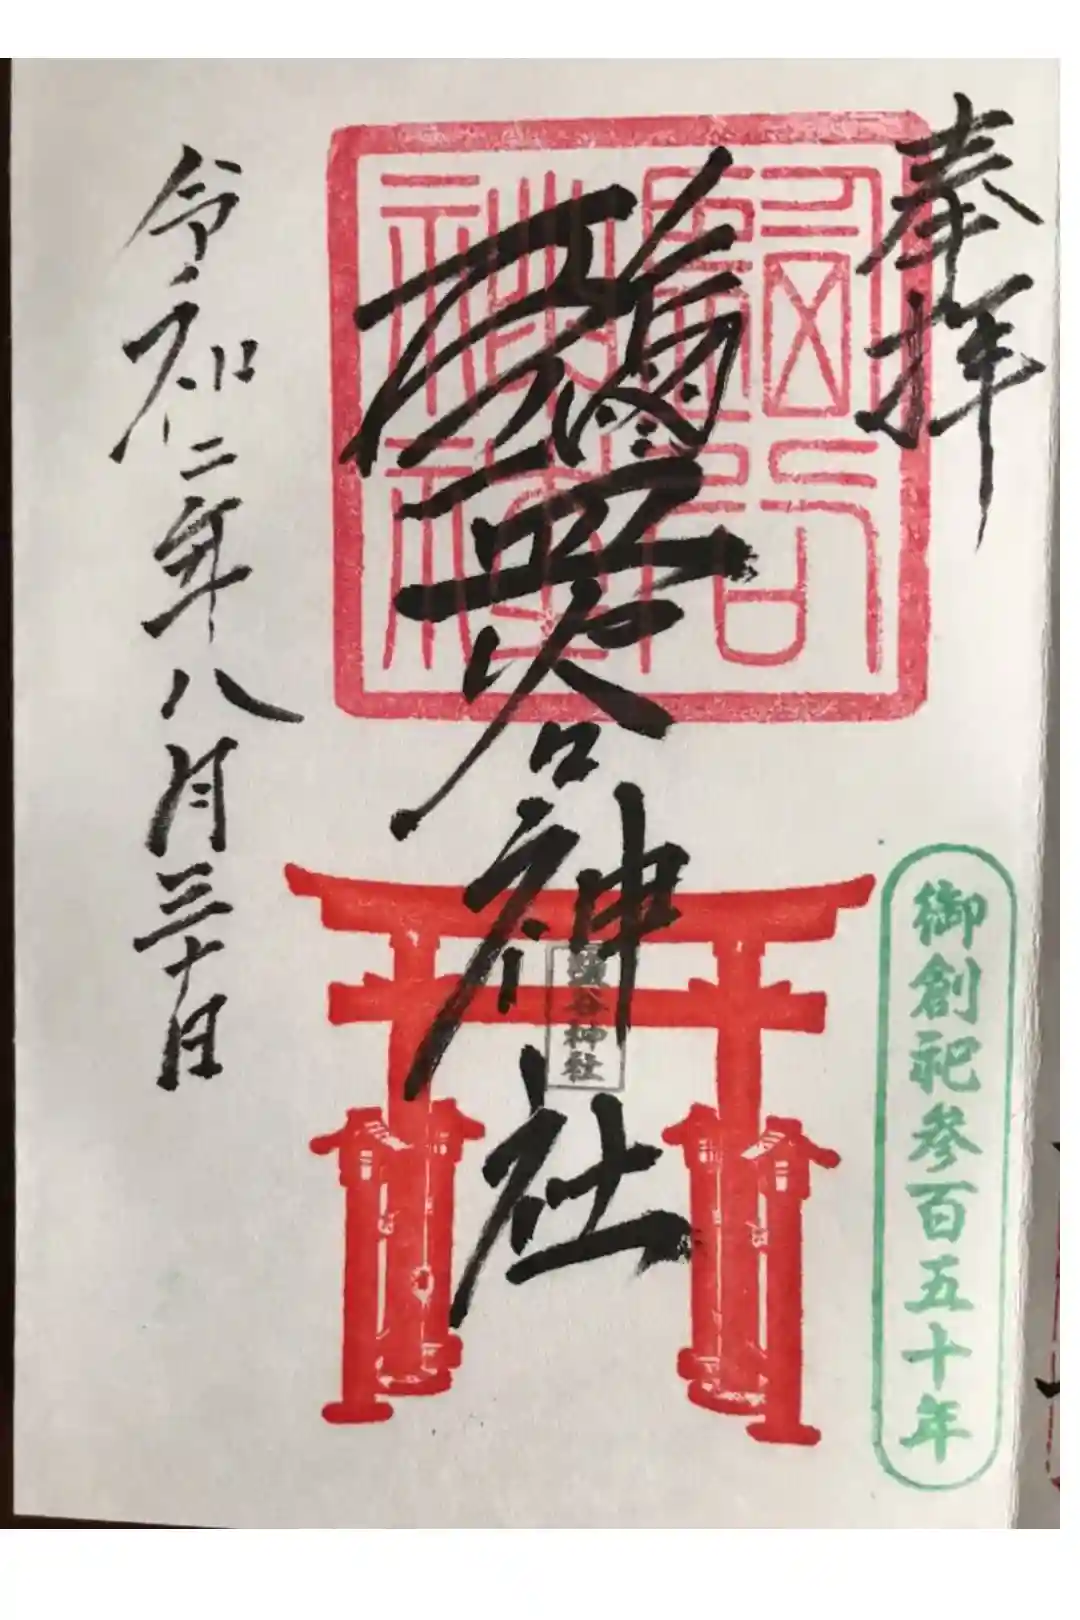 奉拝
鹽谷神社
鹽谷神社
御創祀参百五十年
令和二年八月三十日